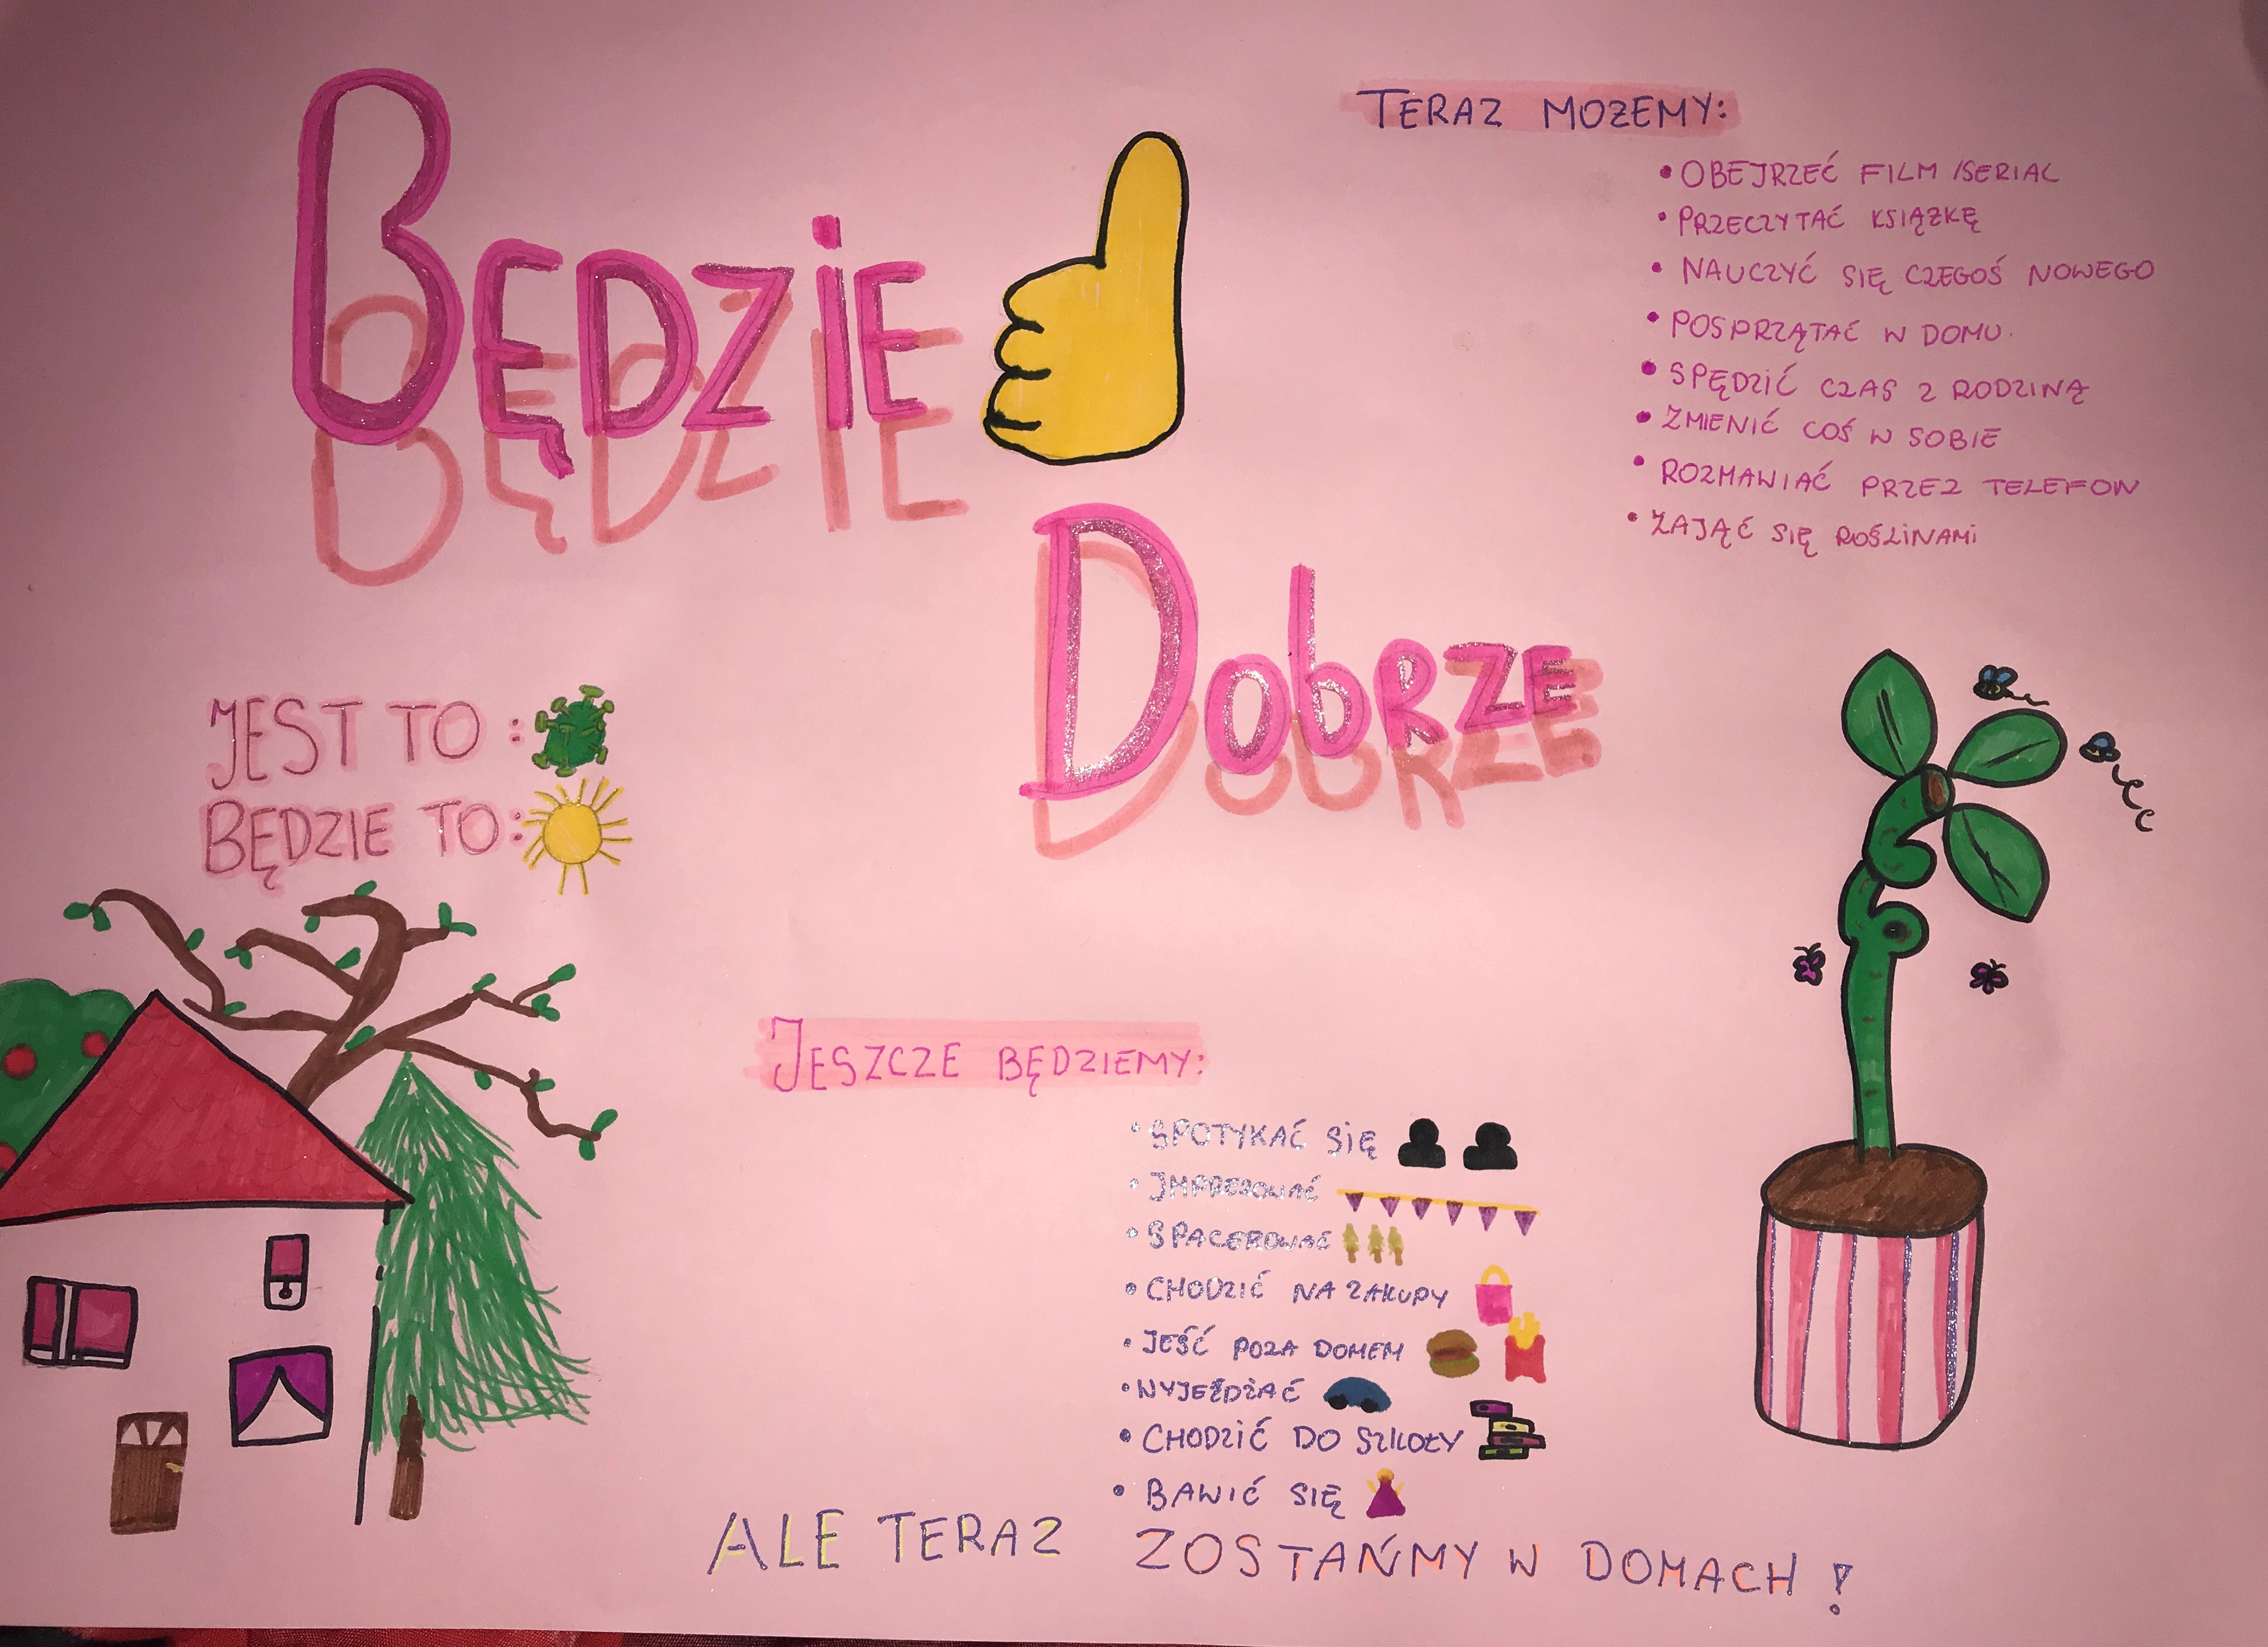 BĘDZIE
DOBRZE
TERAZ MOŻEMY:
• OBEJRZEĆ FILM /SERIAL
• PRZECZYTAĆ KSIĄŻKĘ
• NAUCZYĆ SIĘ CZEGOŚ NOWEGO
• POSPRZĄTAĆ W DOMU.
• SPĘDZIĆ CZAS Z RODZINĄ
• ZMIENIĆ COŚ W SOBIE
• ROZMAWIAĆ PRZEZ TELEFON
• ZAJĄĆ SIĘ ROŚLINAMI
JEST TO :
BĘDZIE TO:
JESZCZE BĘDZIEMY:
• SPOTYKAĆ SIĘ
• IMPREZOWAĆ
• SPACEROWAĆ
• CHODZIĆ NA ZAKUPY
• JEŚĆ POZA DOMEM
• WYJEŻDŻAĆ
• CHODZIĆ DO SZKOŁY
• BAWIĆ SIĘ
ALE TERAZ ZOSTAŃMY W DOMACH !